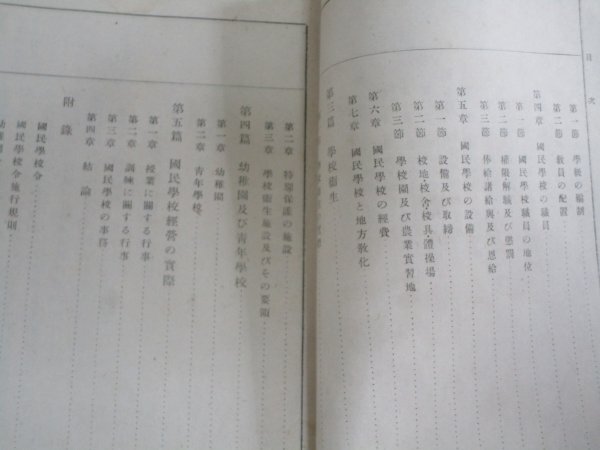 目次
第一節 學級の編制
第二節 教員の配置
第四章 國民學校の職員
第一節 國民學校職員の地位
第二節 權限解職及び懲罰
第三節 俸給諸給與及び恩給
第五章 國民學校の設備
第一節 設備及び取締
第二節 校地校舍校具體操場
第三節 學校園及び農業實習地
第六章 國民學校の經費
第七章 國民學校と地方敎化
第三篇 學校衞生
第二章 特別保護の施設
第三章 學校衞生施設及びその要領
第四篇 幼稚園及び青年學校
第一章 幼稚園
第二章 青年學校
第五篇 國民學校經營の實際
第一章 授業に關する行事
第二章 訓練に關する行事
第三章 國民學校の事務
第四章 結論
附錄
國民學校令
國民學校令施行規則
幼稚園令